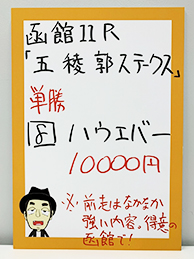 函館11R
「五稜郭ステークス」
単勝
⑧ ハウエバー
10000円
※前走はなかなか
強い内容。得意の
函館で!